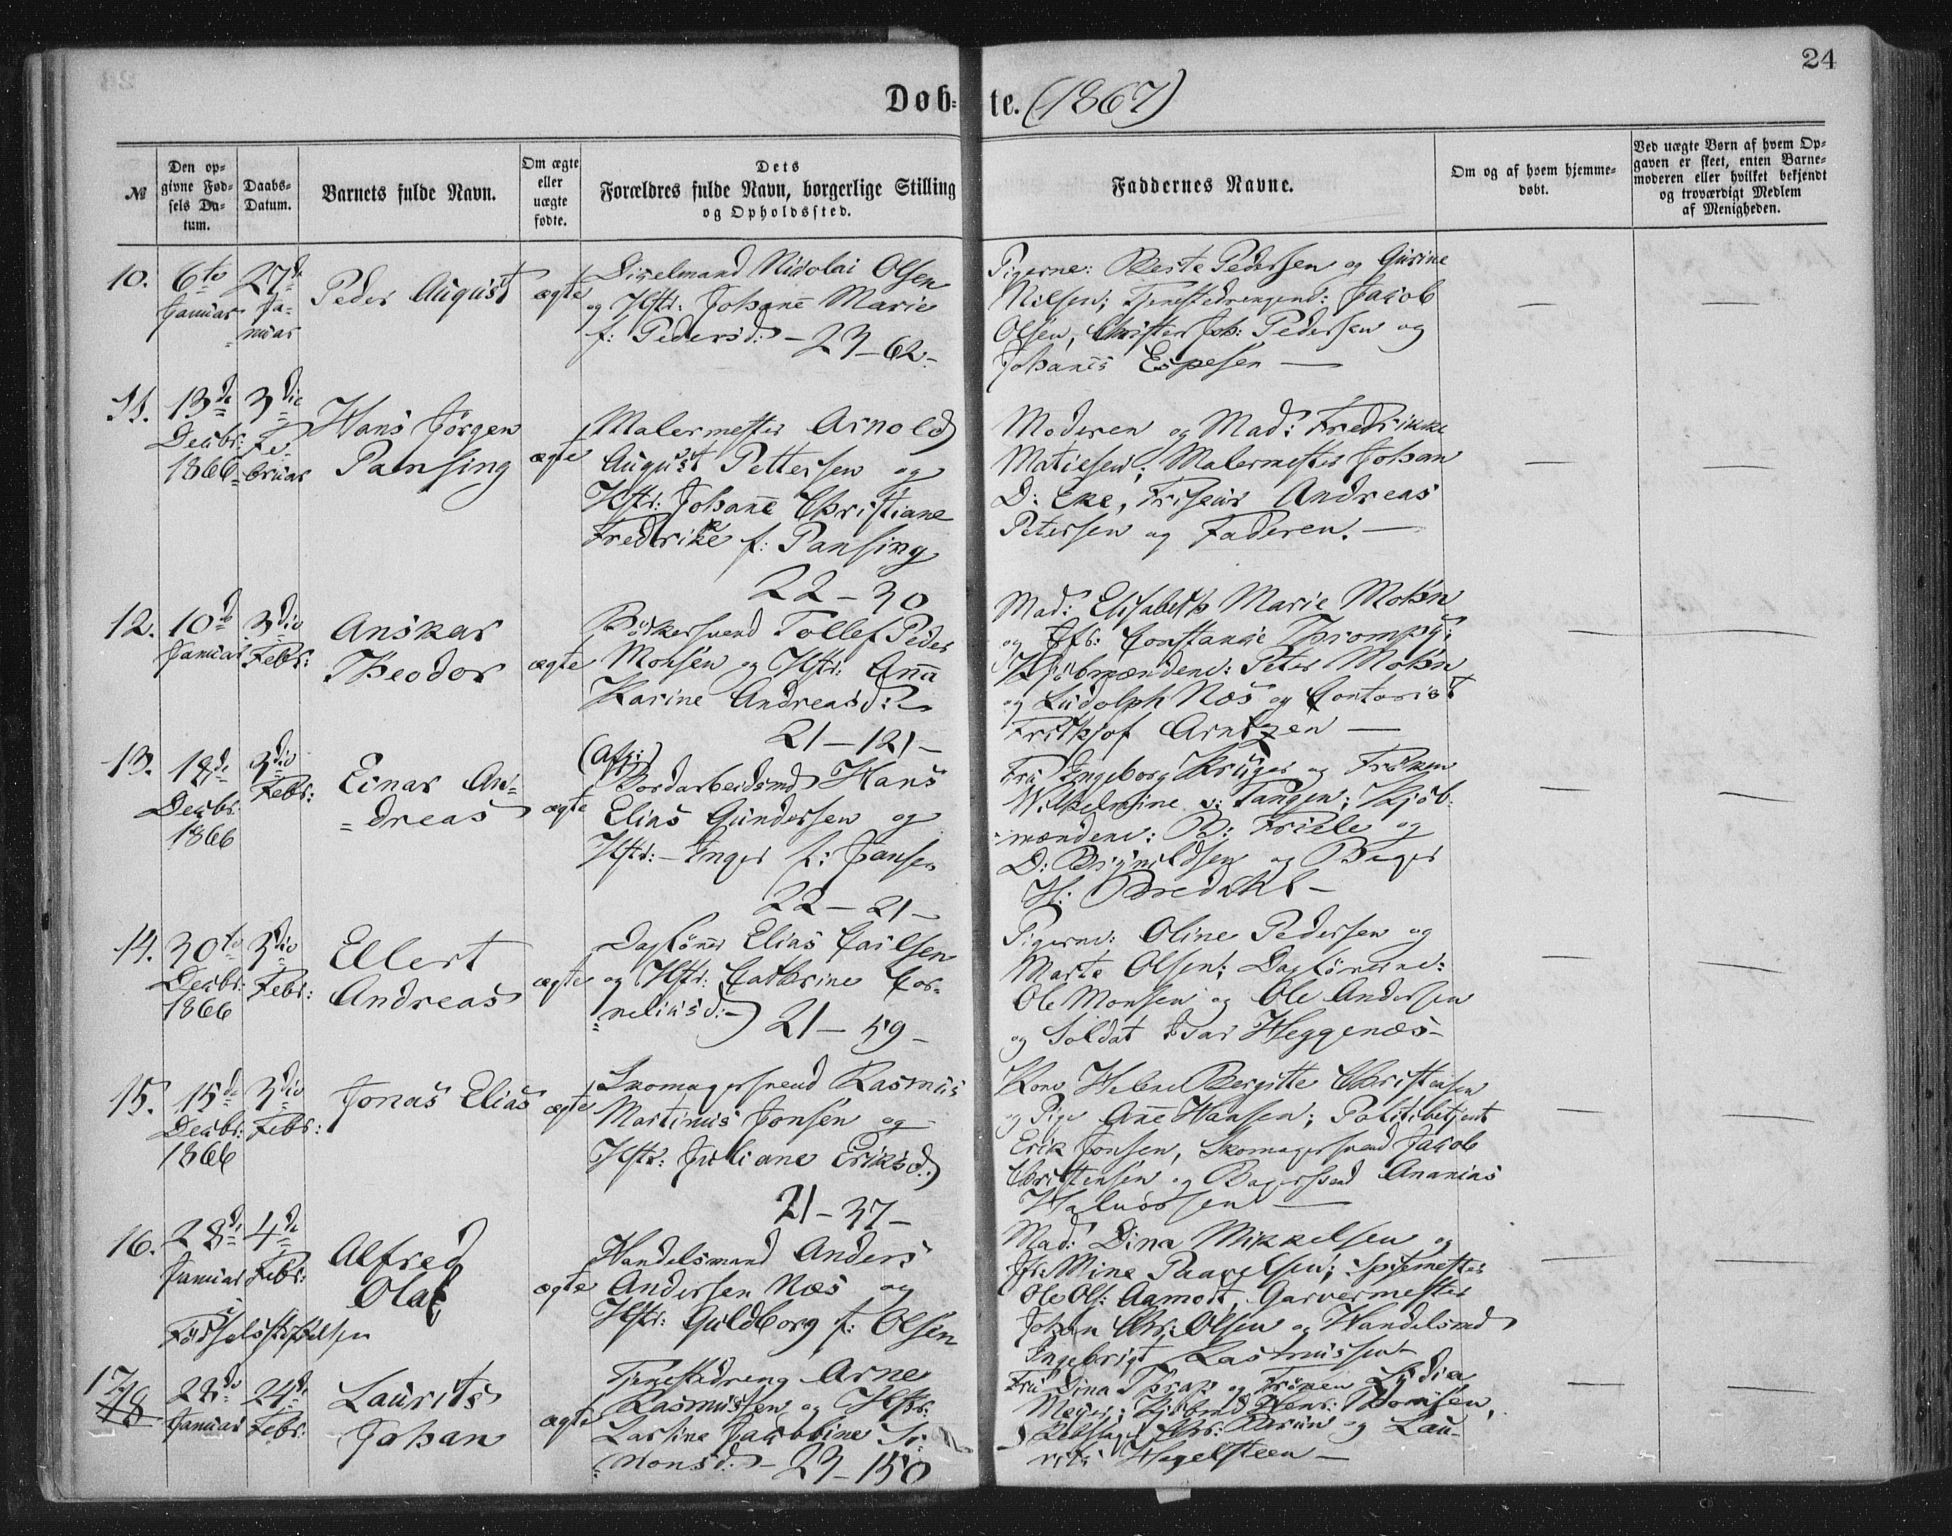 24
Døb- te. (1867)
№
Den op-
givne Fød-
sels Da-
tum.
Daabs-
Datum.
Barnets fulde Navn.
Om ægte
eller
uægte
fødte.
Dets
Forældres fulde Navn, borgerlige Stilling
og Opholdssted.
Faddernes Navne.
Om og af hvem hjemme-
døbt.
Ved uægte Børn af hvem Op-
gaven er skeet, enten Barne-
moderen eller hvilket bekjendt
og troværdigt Medlem
af Menigheden.
10.
6te
Januar
27de
Ja-
nuar
Peder August
ægte
Nicolai Olsen
og Hstr: Johane Marie
f: Pedersd: - 23-62-
Pigerne: Berte Pedersen og Gurine
Nilsen; Tjenestedrengene: Jacob
Olsen, Christer Joh: Pedersen og
Johanes Espesen —
— —
11.
13de
Decbr:
1866
3die
Fe-
bruar
Hans Jørgen
Pansing
ægte
Malermester Arnold
August Pettersen og
Hstr: Johane Christiane
Fredrike f: Pansing
22-30
Moderen og Mad: Fredrikke
Matiesen; Malermester Johan
D: Eke, Friseur Andreas
Petersen og Faderen. —
— —
12.
10de
Januar
3die
Febr:
Anskar
Theodor
ægte
Bødkersvend Tollef Peder
Monsen og Hstr: Ana
Karine Andreasd:
21-121-
Mad: Elisabeth Marie Mohn
og Jfr: Constance Thrompy;
Kjøbmændene: Peter Mohn
og Ludolph Næs og Contorist
Frithjof Arntzen —
— —
13.
18de
Decbr:
1866
3die
Febr:
Einar An-
dreas
ægte
(Afs:)
Bordarbeidsmd Hans
Elias Gundersen og
Hstr: - Inger f: Jansen
22-21-
Fru Ingeborg Krüger og Frøken
Wilhelmine v: Tangen; Kjøb-
mændene: B: Friele og
D: Brynildsen og Bager
H: Bredahl -
— —
14.
30te
Decbr:
1866
3die
Febr:
Ellert
Andreas
ægte
Dagløner Elias Carlsen
og Hstr: Cathrine Cor-
neliusd: -
21-59-
Pigerne: Oline Pedersen og
Marta Olsen; Daglønerne:
Ole Monsen og Ole Andersen
og Soldat Ivar Heggenæs -
— —
15.
15de
Decbr:
1866
3die
Febr:
Jonas Elias
ægte
Skomagersvend Rasmus
Martinus Jonsen og
Hstr: Juliane Eriksd:
21-37-
Kone Helene Bergitte Christensen
og Pige Ane Hansen; Politibetjent
Erik Jonsen, Skomagersvend Jacob
Christensen og Bagersvend Ananias
Halvorsen —
— —
16.
28de
Januar
4de
Febr:
Alfred
Olaf
ægte
Handelsmand Anders
Andersen Næs og
Hstr: Guldborg f: Olsen
Fødselsstiftelsen
Mad: Dina Mikkelsen og
Jfr: Mine Paavelsen; Spisemester
Ole Ols: Aamodt, Garvermester
Johan Chr: Olsen og Handelsmd
Ingebrigt Rasmussen -
— —
17.
18
Januar
24de
Febr:
Laurits
Johan
ægte
Tjenestedreng Arne
Rasmussen og Hstr:
Lastine Jacobine Si-
monsd: - 23-150
Fru Dina Thrap og Frøken Lydia
Meyer; Kjøbmd Henr: Thomsen,
Chr: Bruun og Lau-
rits Hegelsteen -
— —